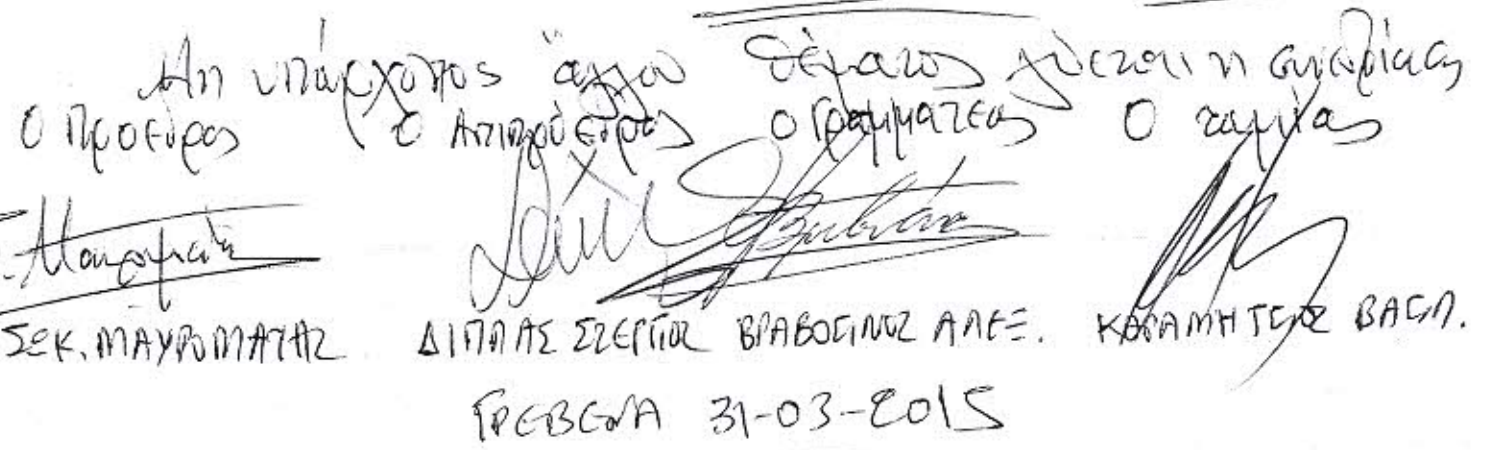 Μη υπάρχοντος άλλου θέματος λύεται η συνεδρίαση
Ο Πρόεδρος Ο Αντιπρόεδρος Ο Γραμματέας Ο ταμίας
Μαυρομάτη
ΣΩΚ. ΜΑΥΡΟΜΑΤΗΣ ΔΙΠΠΑΣ ΣΤΕΡΓΙΟΣ ΒΡΑΒΟΣΙΝΟΣ ΑΛΕΞ. ΒΑΣΙΛ.
ΓΡΕΒΕΝΑ 31-03-2015